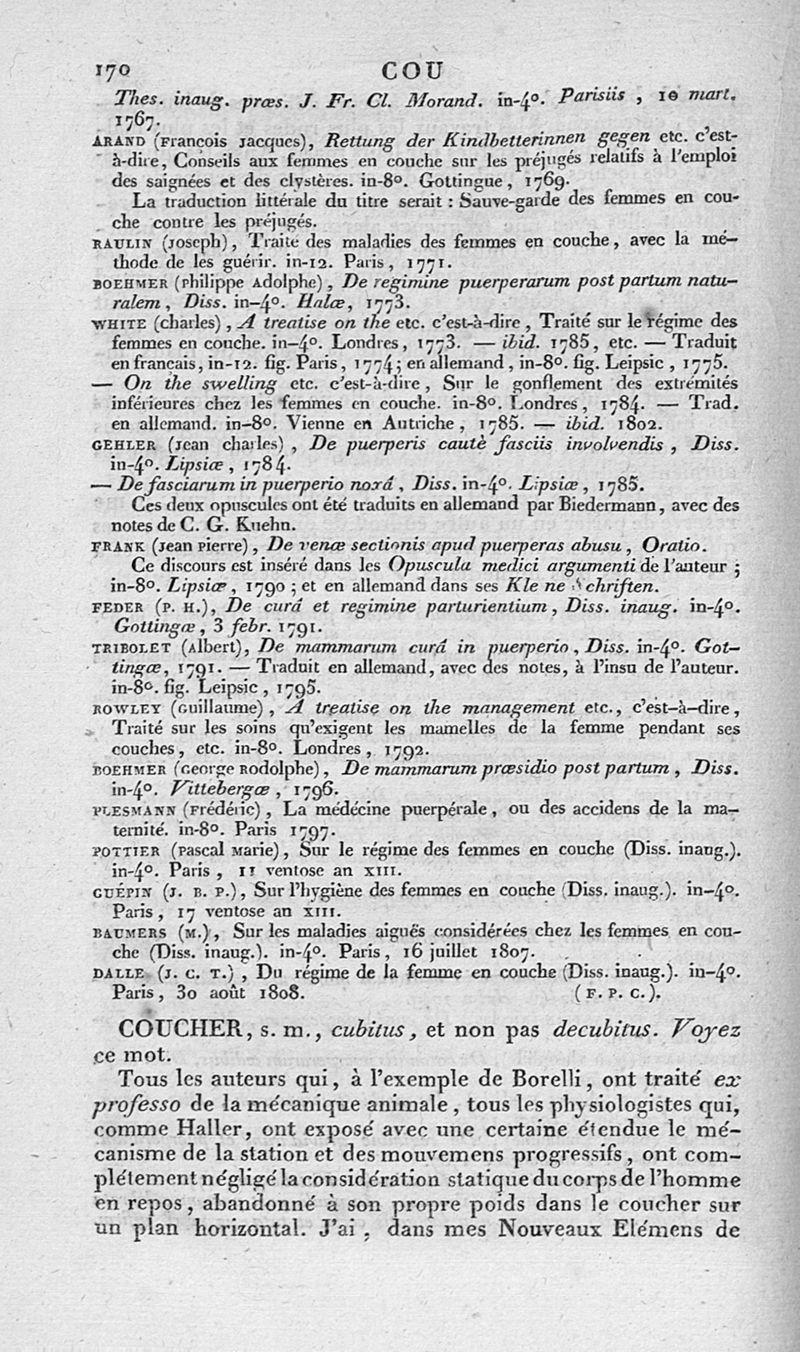 170 COU
Thes. inaug. præs. J. Fr. Cl. Morand. in-4°. Parisiis, 10 mart.
1767.
ARAND (François Jacques), Rettung der Kindbetterinnen gegen etc. c'est-
à-dire, Conseils aux femmes en couche sur les préjugés relatifs à l'emploi
des saignées et des clystères. in-8°. Gottingue, 1769.
La traduction littérale du titre serait : Sauve-garde des femmes en cou-
che contre les préjugés.
RAULIN (Joseph), Traité des maladies des femmes en couche, avec la mé-
thode de les guérir. in-12. Paris, 1771.
BOEHMER (Philippe Adolphe), De regimine puerperarum post partum natu-
ralem, Diss. in-4°. Halæ, 1773.
WHITE (Charles), A treatise on the etc. c'est-à-dire, Traité sur le régime des
femmes en couche. in-4°. Londres, 1773. — ibid. 1785, etc. — Traduit
en français, in-12. fig. Paris, 1774; en allemand, in-8°. fig. Leipsic, 1775.
— On the swelling etc. c'est-à-dire, Sur le gonflement des extrémités
inférieures chez les femmes en couche. in-8°. Londres, 1784. — Trad.
en allemand. in-8°. Vienne en Autriche, 1785. — ibid. 1802.
GEHLER (Jean Charles), De puerperis cautè fasciis involvendis, Diss.
in-4°. Lipsiæ, 1784.
— De fasciarum in puerperio noxâ, Diss. in-4°. Lipsiæ, 1785.
Ces deux opuscules ont été traduits en allemand par Biedermann, avec des
notes de C. G. Kuehn.
FRANK (Jean Pierre), De venæ sectionis apud puerperas abusu, Oratio.
Ce discours est inséré dans les Opuscula medici argumenti de l'auteur;
in-8°. Lipsiæ, 1790; et en allemand dans ses Kle ne Schriften.
FEDER (P. H.), De curâ et regimine parturientium, Diss. inaug. in-4°.
Gottingæ, 3 febr. 1791.
TRIBOLET (Albert), De mammarum curâ in puerperio, Diss. in-4°. Got-
tingæ, 1791. — Traduit en allemand, avec des notes, à l'insu de l'auteur.
in-8°. fig. Leipsic, 1795.
ROWLEY (Guillaume), A treatise on the management etc., c'est-à-dire,
Traité sur les soins qu'exigent les mamelles de la femme pendant ses
couches, etc. in-8°. Londres, 1792.
BOEHMER (George Rodolphe), De mammarum præsidio post partum, Diss.
in-4°. Vittebergæ, 1796.
PLESMANN (Frédéric), La médécine puerpérale, ou des accidens de la ma-
ternité. in-8°. Paris 1797.
POTTIER (Pascal Marie), Sur le régime des femmes en couche (Diss. inaug.).
in-4°. Paris, 11 ventose an XIII.
GUÉPIN (J. B. P.), Sur l'hygiène des femmes en couche (Diss. inaug.). in-4°.
Paris, 17 ventose an XIII.
BAUMERS (M.), Sur les maladies aiguës considérées chez les femmes en cou-
che (Diss. inaug.). in-4°. Paris, 16 juillet 1807.
DALLE (J. C. T.), Du régime de la femme en couche (Diss. inaug.). in-4°.
Paris, 30 août 1808. (F. P. C.).
COUCHER, s. m., cubitus, et non pas decubitus. Voyez
ce mot.
Tous les auteurs qui, à l'exemple de Borelli, ont traité ex
professo de la mécanique animale, tous les physiologistes qui,
comme Haller, ont exposé avec une certaine étendue le mé-
canisme de la station et des mouvemens progressifs, ont com-
plétement négligé la considération statique du corps de l'homme
en repos, abandonné à son propre poids dans le coucher sur
un plan horizontal. J'ai, dans mes Nouveaux Elémens de